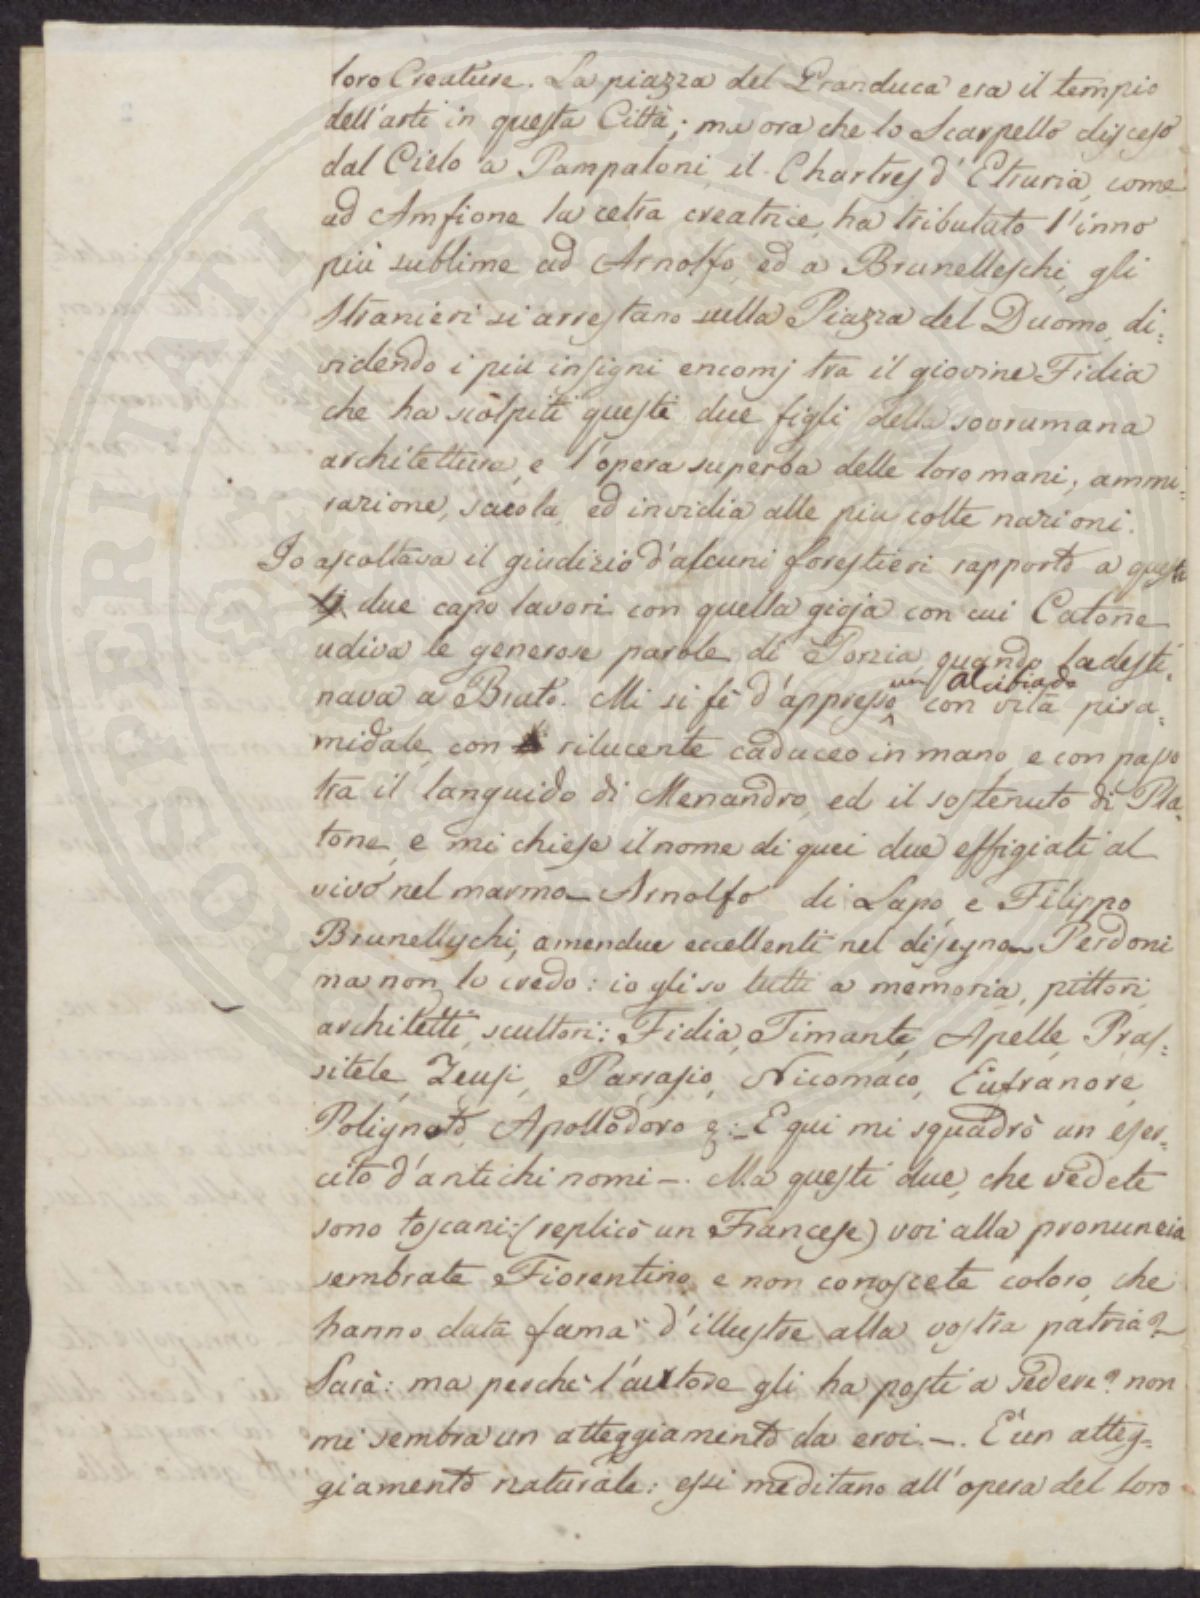 loro Creature. La piazza del Granduca era il tempio
dell'arti in questa Città; ma ora che lo Scarpello disceso
dal Cielo a Pampaloni, il Chartres d'Etruria, come
ad Amfione la cetra creatrice, ha tributato l'inno
più sublime ad Arnolfo, ed a Brunelleschi, gli
Stranieri si arrestano sulla Piazza del Duomo, di:
videndo i più insigni encomj tra il giovine Fidia
che ha scolpiti questi due figli della sovrumana
architettura, e l'opera superba delle loro mani, ammi:
razione, scuola, ed invidia alle più colte nazioni.
Io ascoltava il giudizio d'alcuni forestieri rapporto a questi
due capo lavori con quella gioja con cui Catone
udiva le generose parole di Porzia, quando la desti:
nava a Bruto. Mi si fè d'appresso un Alcibiade con vita pira:
midale, con rilucente caduceo in mano, e con passo
tra il languido di Menandro, ed il sostenuto di Pla:
tone, e mi chiese il nome di quei due effigiati al
vivo nel marmo – Arnolfo di Lapo, e Filippo
Brunelleschi, amendue eccellenti nel disegno – Perdoni
ma non lo credo: io gli so tutti a memoria, pittori,
architetti, scultori: Fidia, Timante, Apelle, Pras:
sitele, Zeusi, Parrasio, Nicomaco, Eufranore,
Polignoto, Apollodoro &: – E qui mi squadrò un eser:
cito d'antichi nomi –. Ma questi due, che vedete
sono toscani: (replicò un Francese) voi alla pronuncia
sembrate Fiorentino, e non conoscete coloro, che
hanno data fama d'illustre alla vostra patria? –
Sarà: ma perchè l'autore gli ha posti a sedere? non
mi sembra un atteggiamento da eroi. –. È un atteg:
giamento naturale: essi meditano all'opera del loro
PROSPERITATI